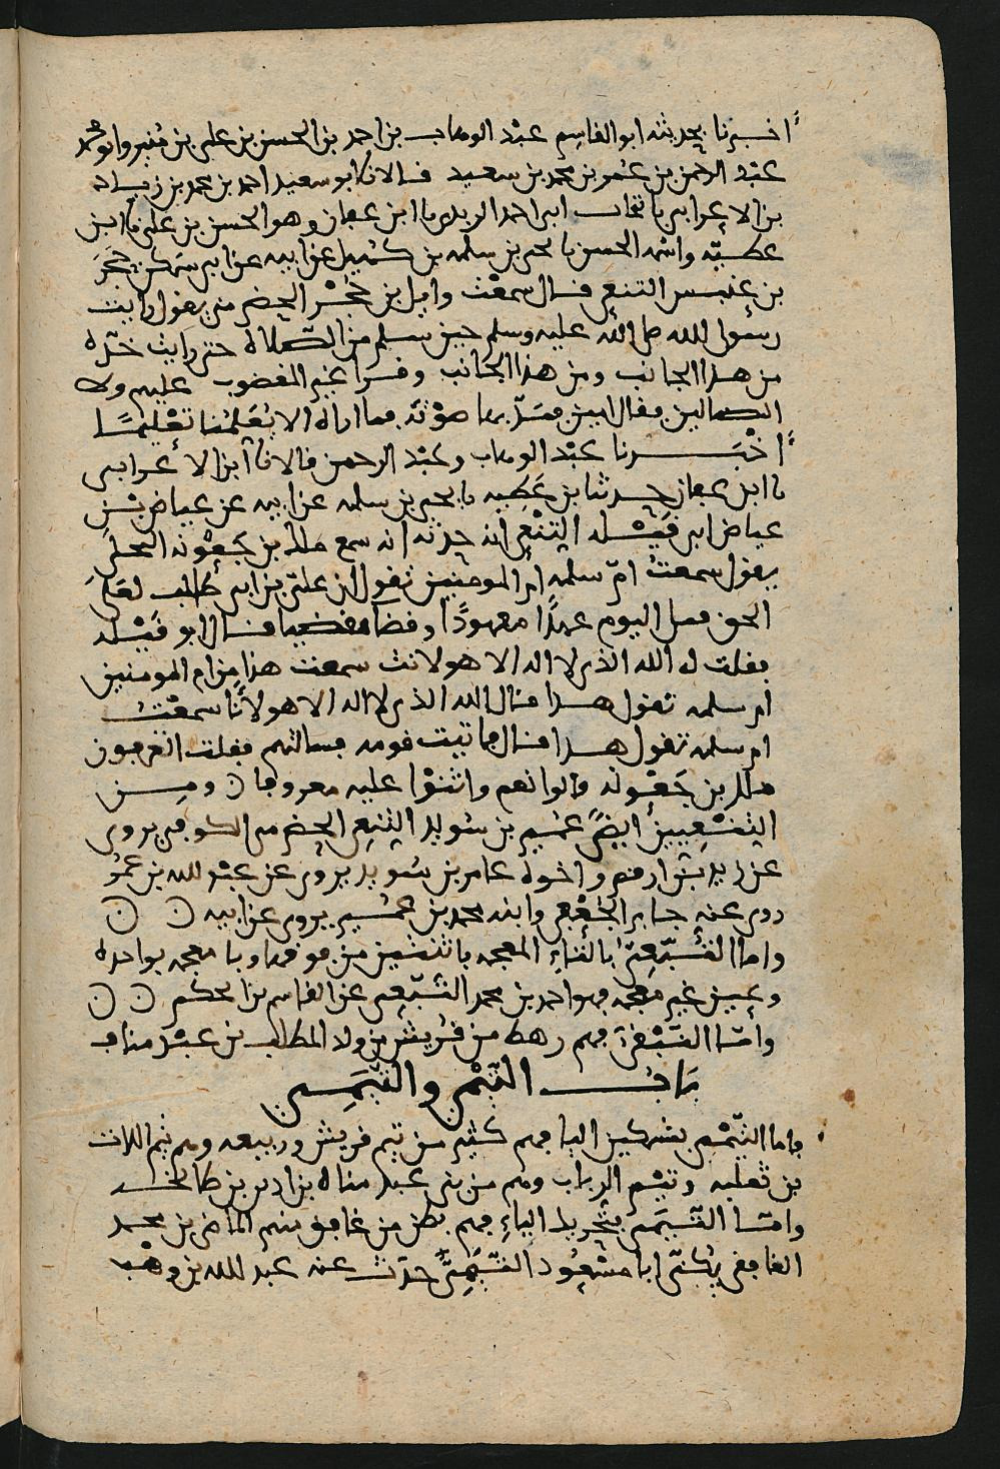 اخبرنا بحديثه ابو القاسم عبد الوهاب بن احمد بن الحسن بن علي بن منير وابو محمد
عبد الرحمن بن عمر بن محمد بن سعيد قالا نا ابو سعيد احمد بن محمد بن زياد
بن الاعرابي نا ابن عفان وهو الحسن بن علي نا ابن
عطية واسمه الحسن نا يحيى بن سلمة بن كهيل عن ابيه عن ابي سكن حجر
بن عنبس التنعي قال سمعت وايل بن حجر الحضرمي يقول رايت
رسول الله صلى الله عليه وسلم حين سلم من الصلاة حتى رايت خده
من هذا الجانب ومن هذا الجانب وقرا غير المغضوب عليهم ولا
الضالين فقال امين فمد بها صوته فما اراه الا يعلمنا تعليما
اخبرنا عبد الوهاب وعبد الرحمن قالا نا ابن الاعرابي
نا ابن عفان حدثنا بن عطية نا يحيى بن سلمة عن ابيه عن عياض بن
عياض ابي قيلة التنعي انه حدثه انه سمع ملك بن جعونة
يقول سمعت ام سلمة ام المومنين تقول ان علي بن ابي طالب لعلى
الحق قبل اليوم عهدا معهودا وقضا مقضيا فقال ابو قيلة
فقلت له الله الذي لا اله الا هو لانت سمعت هذا من ام المومنين
ام سلمة تقول هذا فقال الله الذي لا اله الا هو لانا سمعت
ام سلمة تقول هذا قال فاتيت قومه فسالتهم فقلت اتعرفون
ملك بن جعونة قالوا نعم واثنوا عليه معروفا ومن
التنعيين ايضا عمير بن سويد التنعي الحضرمي الكوفي يروي
عن زيد بن ارقم واخوه عامر بن سويد يروي عن عبد الله بن عمر
روى عنه جابر الجعفي وابنه محمد بن عمير يروي عن ابيه
واما التبعي بالتاء المعجمة باثنتين من فوقها وبا معجمة بواحدة
وعين غير معجمة فهو احمد بن محمد التبعي عن القاسم بن الحكم
واما فهم رهط من قريش من ولد المطلب بن عبد مناف
باب التيمي والتيمي
فاما التيمي بتسكين اليا فهم كثير من تيم قريش وربيعة وهم تيم اللات
بن ثعلبة وتيم الرباب وهم من بني عبد مناة بن اد بن طابخة
واما التيمي بتحريك الياء فهم بطن من غافق منهم الماضي بن محمد
الغافقي يكنى ابا مسعود التيمي حدث عنه عبد الله بن وهب